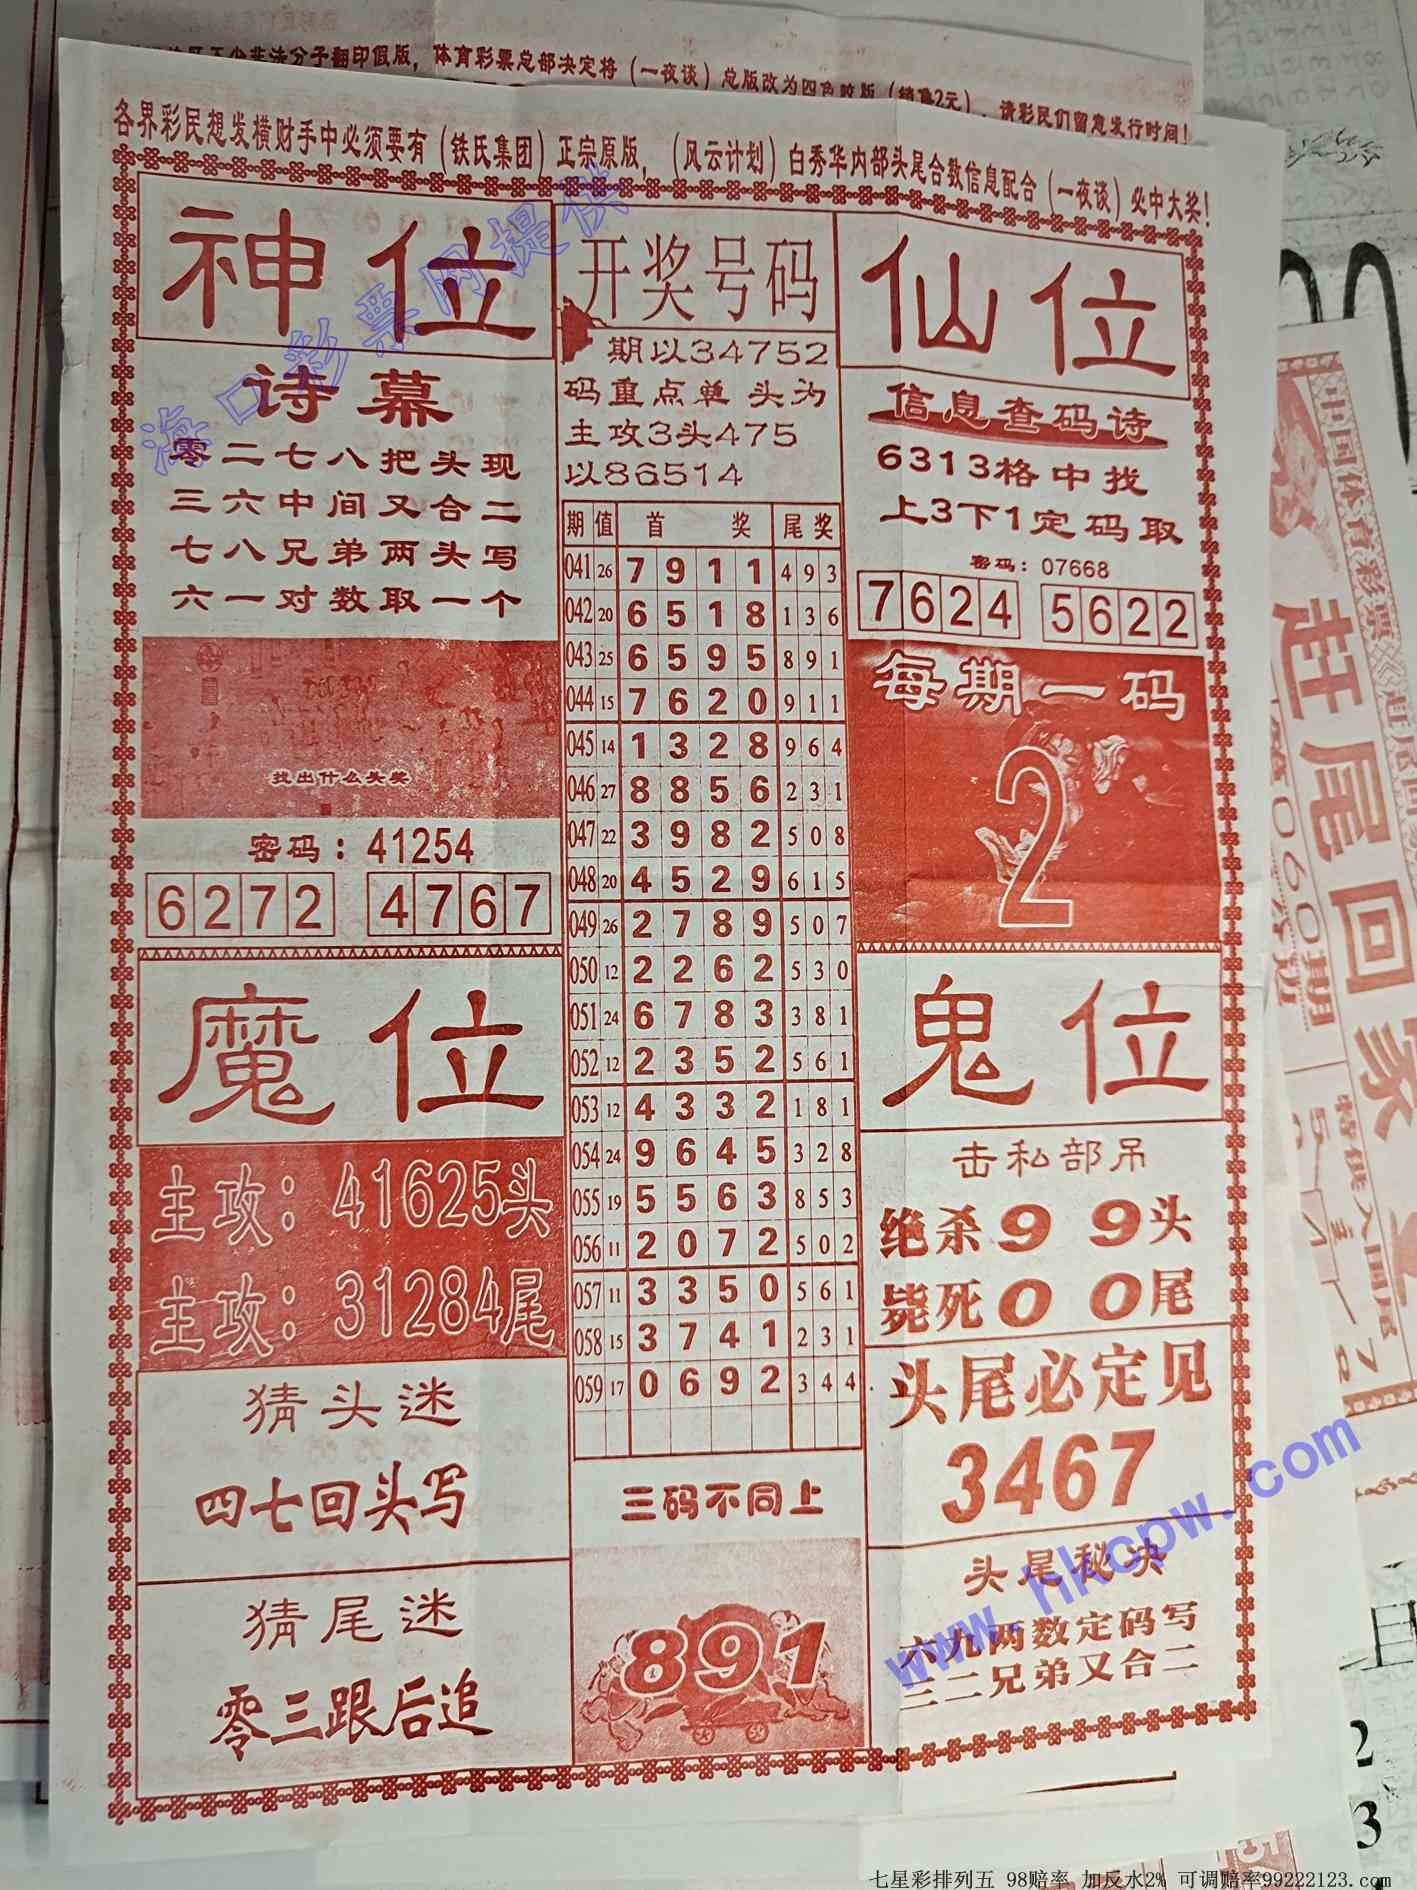 体育彩票总部决定将（一夜谈）总版改为四色胶版（
2元），请彩民们留意发行时间！
各界彩民想发横财手中必须要有（铁氏集团）正宗原版，（风云计划）白秀华内部头尾合数信息配合（一夜谈）必中大奖！
神位
诗幕
零二七八把头现
三六中间又合二
七八兄弟两头写
六一对数取一个
找出什么头奖
密码：41254
6272 4767
魔位
主攻：41625头
主攻：31284尾
猜头迷
四七回头写
猜尾迷
零三跟后追
开奖号码
期以34752
码重点单 头为
主攻3头475
以86514
期 值 首 奖 尾 奖
041 26 7 9 1 1 4 9 3
042 20 6 5 1 8 1 3 6
043 25 6 5 9 5 8 9 1
044 15 7 6 2 0 9 1 1
045 14 1 3 2 8 9 6 4
046 27 8 8 5 6 2 3 1
047 22 3 9 8 2 5 0 8
048 20 4 5 2 9 6 1 5
049 26 2 7 8 9 5 0 7
050 12 2 2 6 2 5 3 0
051 24 6 7 8 3 3 8 1
052 12 2 3 5 2 5 6 1
053 12 4 3 3 2 1 8 1
054 24 9 6 4 5 3 2 8
055 19 5 5 6 3 8 5 3
056 11 2 0 7 2 5 0 2
057 11 3 3 5 0 5 6 1
058 15 3 7 4 1 2 3 1
059 17 0 6 9 2 3 4 4
三码不同上
891
仙位
信息查码诗
6313格中找
上3下1定码取
密码：07668
7624 5622
每期一码
2
鬼位
击私部吊
绝杀9 9头
毙死0 0尾
头尾必定见
3467
头尾秘决
六九两数定码写
三二兄弟又合二
中国体育彩票《赶尾回家
赶尾回家
第060期
海口彩票网提供
www.hkcpw.com
2
3
七星彩排列五 98赔率 加反水2% 可调赔率99222123.com